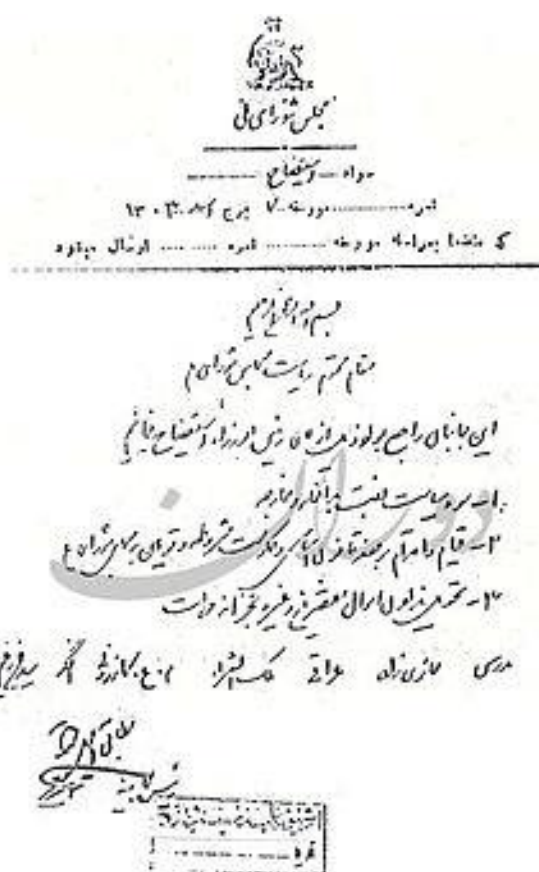 مجلس شورای ملی
سواد استیضاح
نمره ... مورخه ۷ برج اسد ۱۳۰۳
که منضما بمراسله مورخه ... نمره ... ارسال میشود
بسم الله الرحمن الرحیم
مقام محترم ریاست مجلس شورای ملی
این جانبان راجع بمواد ذیل از آقای رئیس الوزراء استیضاح مینمائیم
۱- سوء سیاست نسبت بداخله و خارجه
۲- قیام و اقدام بر ضد قانون اساسی و حکومت مشروطه و توهین بمجلس شورای ملی
۳- تحویل ندادن اموال مقصرین و غیره بخزانه دولت
مدرس حائری زاده عراقی ملک الشعرا کازرونی
دوران
رئیس کابینه
نمره